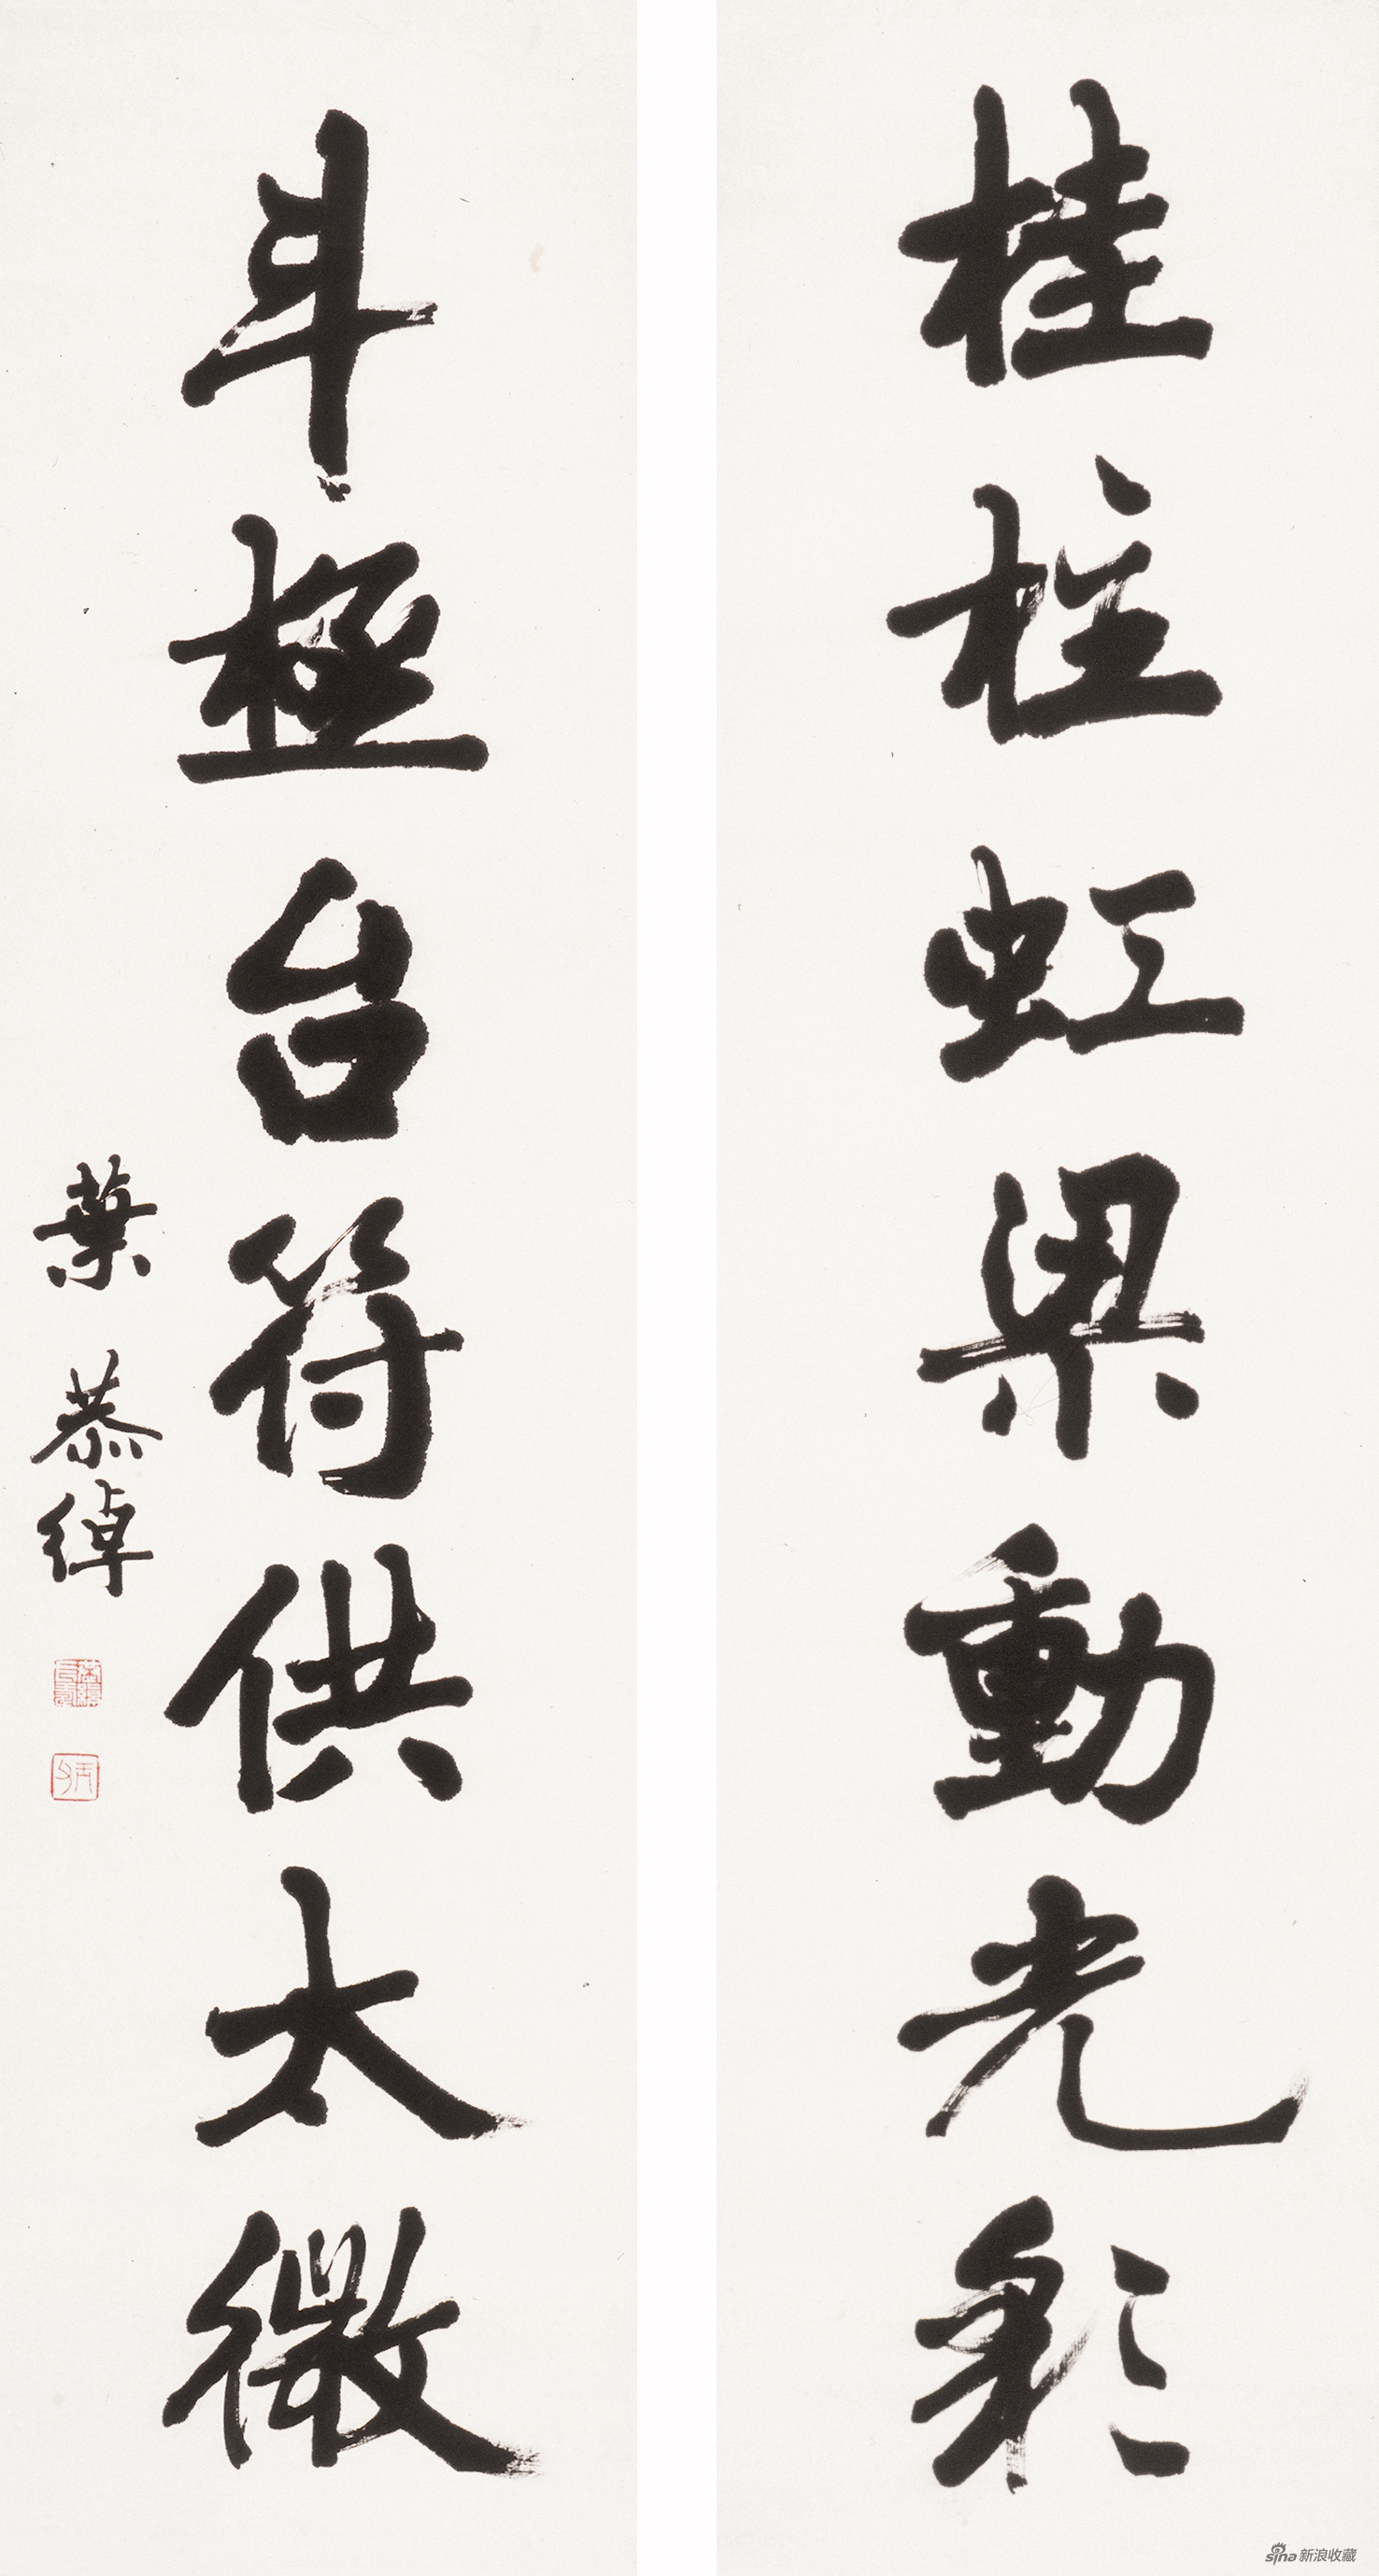 桂柱虹梁動光彩
斗極台符供太微
葉恭綽
sina 新浪收藏